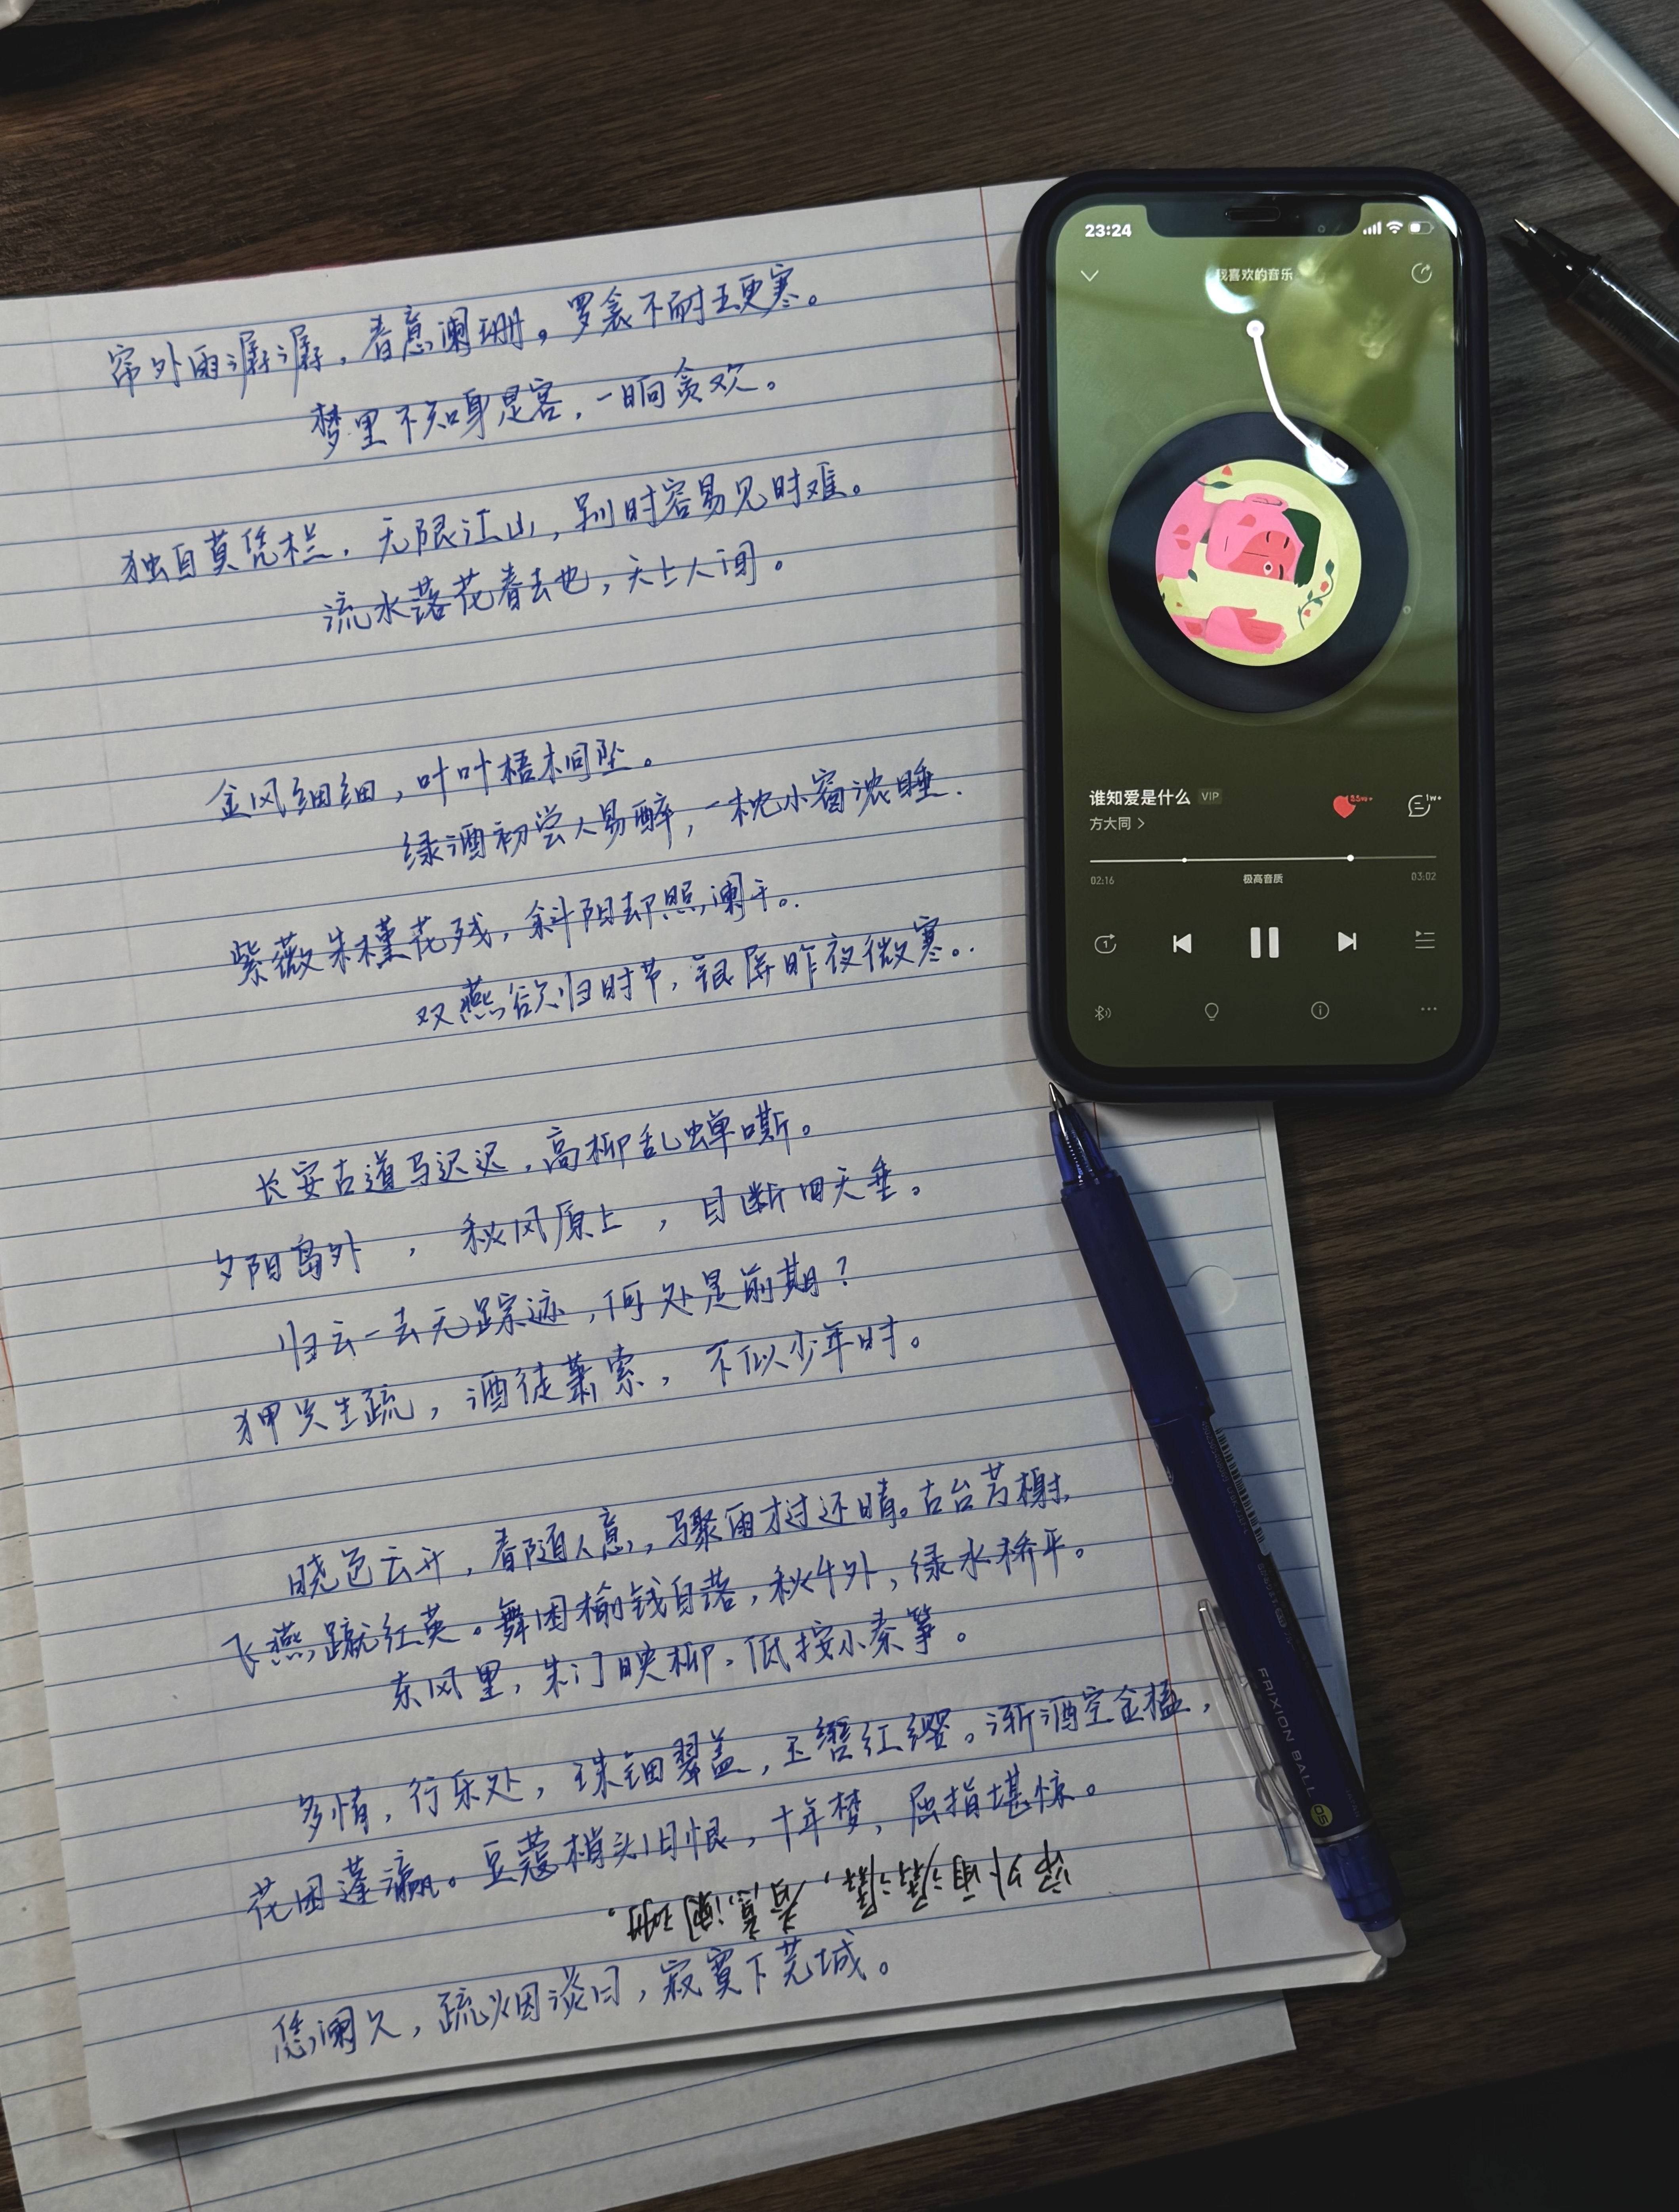 帘外雨潺潺，春意阑珊。罗衾不耐五更寒。
梦里不知身是客，一晌贪欢。
独自莫凭栏，无限江山，别时容易见时难。
流水落花春去也，天上人间。
金风细细，叶叶梧桐坠。
绿酒初尝人易醉，一枕小窗浓睡.
紫薇朱槿花残，斜阳却照阑干。
双燕欲归时节，银屏昨夜微寒。
长安古道马迟迟，高柳乱蝉嘶。
夕阳岛外，秋风原上，目断四天垂。
归云一去无踪迹，何处是前期？
狎兴生疏，酒徒萧索，不似少年时。
晓色云开，春随人意，骤雨才过还晴。古台芳榭，
飞燕蹴红英。舞困榆钱自落，秋千外，绿水桥平。
东风里，朱门映柳，低按小秦筝。
多情，行乐处，珠钿翠盖，玉辔红缨。渐酒空金榼，
花困蓬瀛。豆蔻梢头旧恨，十年梦，屈指堪惊。
帘外雨潺潺，春意阑珊。
凭阑久，疏烟淡日，寂寞下芜城。
23:24
我喜欢的音乐
谁知爱是什么 VIP
方大同
1w+
02:16 极高音质 03:02
FRIXION BALL 05